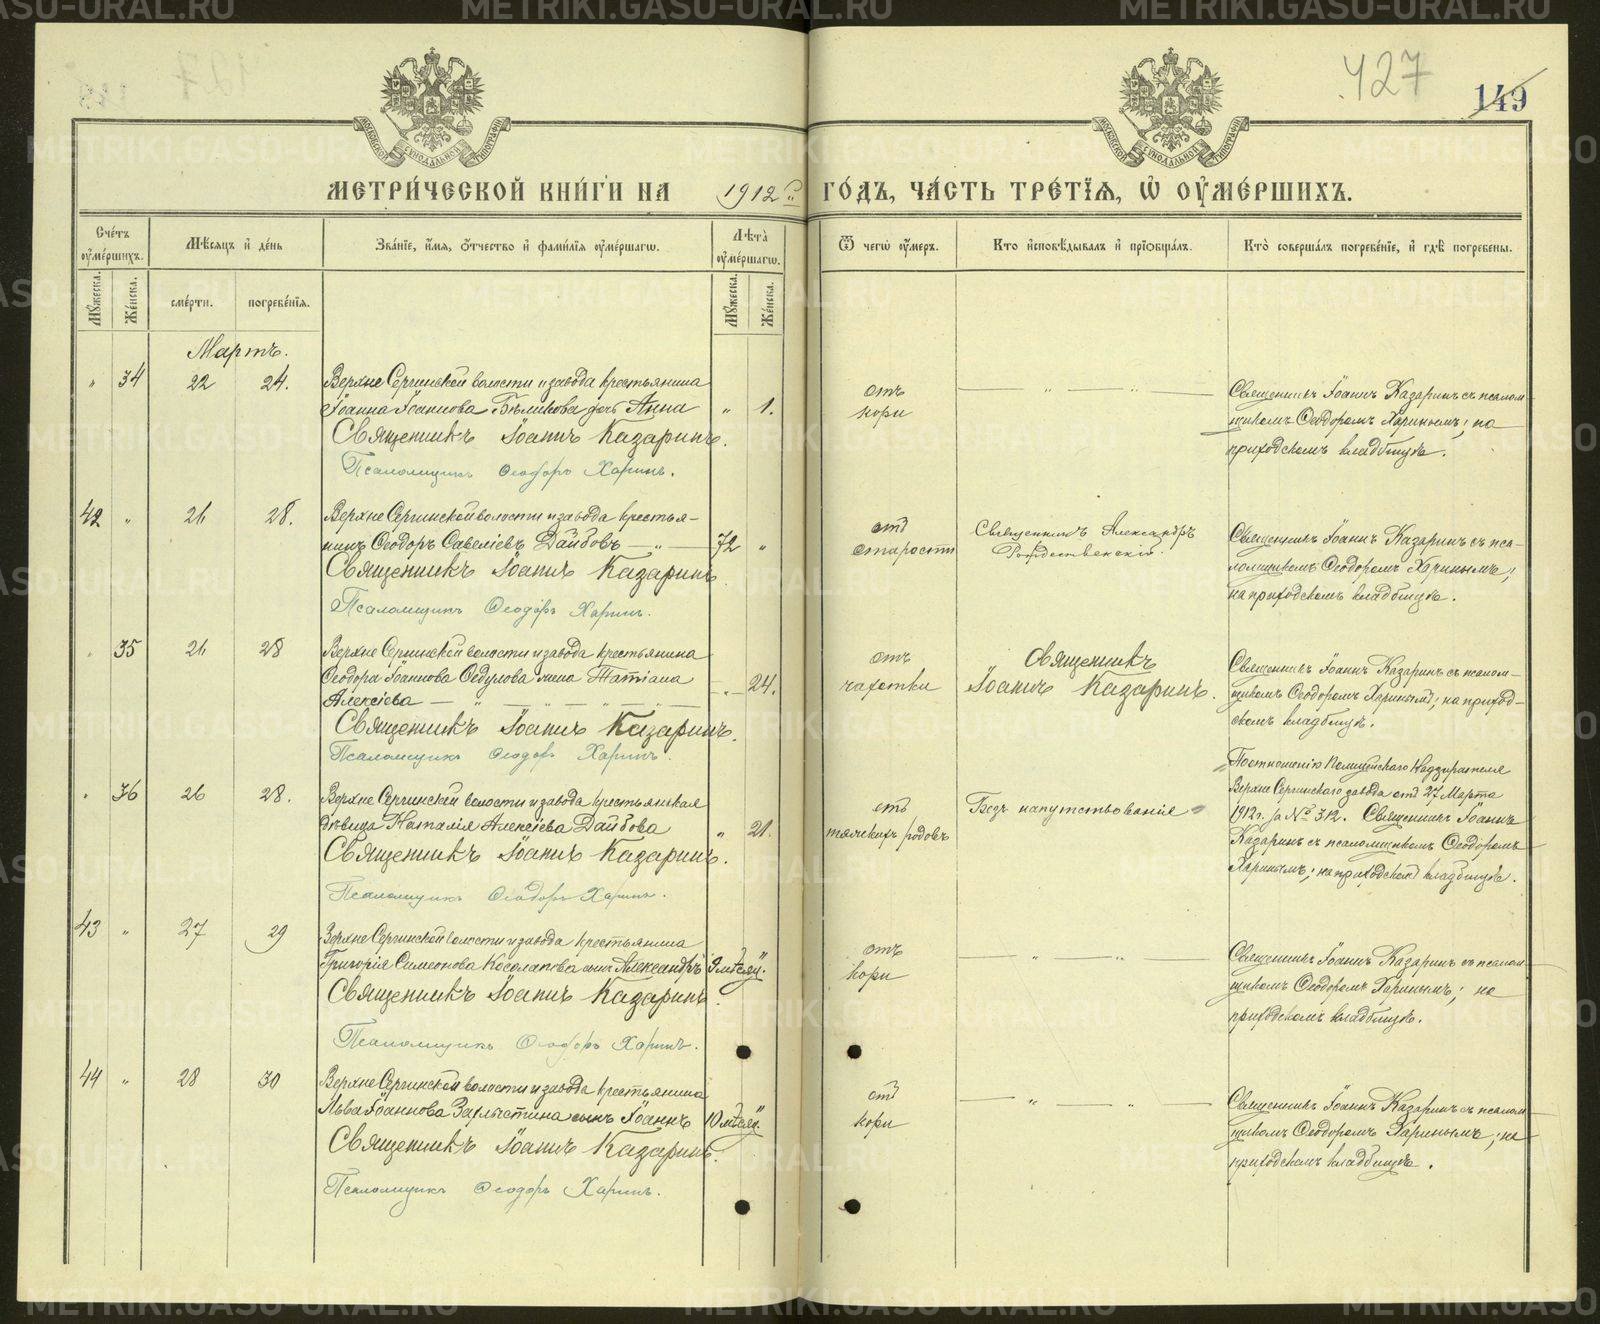 427
149
МОСКОВСКОЙ СѴНОДАЛЬНОЙ ТИПОГРАФІИ
МОСКОВСКОЙ СѴНОДАЛЬНОЙ ТИПОГРАФІИ
МЕТРИ́ЧЕСКОЙ КНИ́ГИ НА 1912 г. ГО́ДЪ, ЧА́СТЬ ТРЕ́ТЇѦ, Ѽ ОУ҆МЕ́РШИХЪ.
Сче́тъ оу҆ме́ршихъ.
Мѣ́сѧцъ и҆ де́нь
Зва́нїе, и҆́мѧ, ѻ҆́тчество и҆ фами́лїѧ оу҆ме́ршагѡ.
Лѣ́та оу҆ме́ршагѡ.
Ѿ чегѡ̀ оу҆́меръ.
Кто̀ и҆сповѣ́дывалъ и҆ прїѡбща́лъ.
Кто̀ соверша́лъ погребе́нїе, и҆ гдѣ̀ погребены̀.
Мꙋ́жеска.
Же́нска.
сме́рти.
погребе́нїѧ.
Мꙋ́жеска.
Же́нска.
Мартъ.
" 34 22 24.
Верхне Сергинской волости и завода крестьянина
Іоанна Іоаннова Бѣликова дочь Анна " 1.
Священникъ Іоаннъ Казаринъ.
Псаломщикъ Ѳеодоръ Харинъ.
отъ
кори
— " — " —
Священникъ Іоаннъ Казаринъ съ псалом-
щикомъ Ѳеодоромъ Харинымъ; на
приходскомъ кладбищѣ.
42 " 26 28.
Верхне Сергинской волости и завода крестья-
нинъ Ѳеодоръ Савеліевъ Даибовъ — " — 72 "
Священникъ Іоаннъ Казаринъ.
Псаломщикъ Ѳеодоръ Харинъ.
отъ
старости
Священникъ Александръ
Рождественскій.
Священникъ Іоаннъ Казаринъ съ пса-
ломщикомъ Ѳеодоромъ Харинымъ;
на приходскомъ кладбищѣ.
" 35 26 28
Верхне Сергинской волости и завода крестьянина
Ѳеодора Іоаннова Ѳедулова жена Татіана — " — 24.
Алексіева — " — " — " —
Священникъ Іоаннъ Казаринъ.
Псаломщикъ Ѳеодоръ Харинъ.
отъ
чахотки
Священникъ
Іоаннъ Казаринъ.
Священникъ Іоаннъ Казаринъ съ псалом-
щикомъ Ѳеодоромъ Харинымъ; на приход-
скомъ кладбищѣ.
" 36 26 28.
Верхне Сергинской волости и завода крестьянская
дѣвица Наталія Алексіева Даибова " 21.
Священникъ Іоаннъ Казаринъ.
Псаломщикъ Ѳеодоръ Харинъ.
отъ
тяжскихъ родовъ
Безъ напутствованія
По отношенію Полицейскаго Надзирателя
Верхне Сергинскаго завода отъ 27 Марта
1912 г. за № 312. Священникъ Іоаннъ
Казаринъ съ псаломщикомъ Ѳеодоромъ
Харинымъ; на приходскомъ кладбищѣ.
43 " 27 29
Верхне Сергинской волости и завода крестьянина
Григорія Симеонова Косолапова сынъ Александръ 9 мѣсяц.
Священникъ Іоаннъ Казаринъ.
Псаломщикъ Ѳеодоръ Харинъ.
отъ
кори
— " — " —
Священникъ Іоаннъ Казаринъ съ псалом-
щикомъ Ѳеодоромъ Харинымъ; на
приходскомъ кладбищѣ.
44 " 28 30
Верхне Сергинской волости и завода крестьянина
Льва Іоаннова сынъ Іоаннъ 10 мѣсяц.
Священникъ Іоаннъ Казаринъ.
Псаломщикъ Ѳеодоръ Харинъ.
отъ
кори
— " — " —
Священникъ Іоаннъ Казаринъ съ псалом-
щикомъ Ѳеодоромъ Харинымъ; на
приходскомъ кладбищѣ.
METRIKI.GASO-URAL.RU